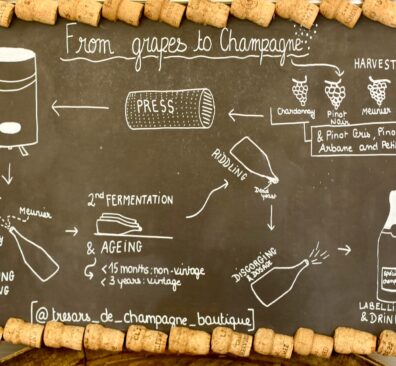 From grapes to Champagne
HARVEST
Chardonnay
Pinot
Noir
Meunier
& Pinot Gris, Pino
Arbane and Peti
PRESS
RIDDLING
Dead
yeast
Meunier
2nd FERMENTATION
& AGEING
< 15 months: non-vintage
< 3 years: vintage
DISGORGING
& DOSAGE
NG
NG
LABELLI
& DRIN
[@tresors_de_champagne_boutique]